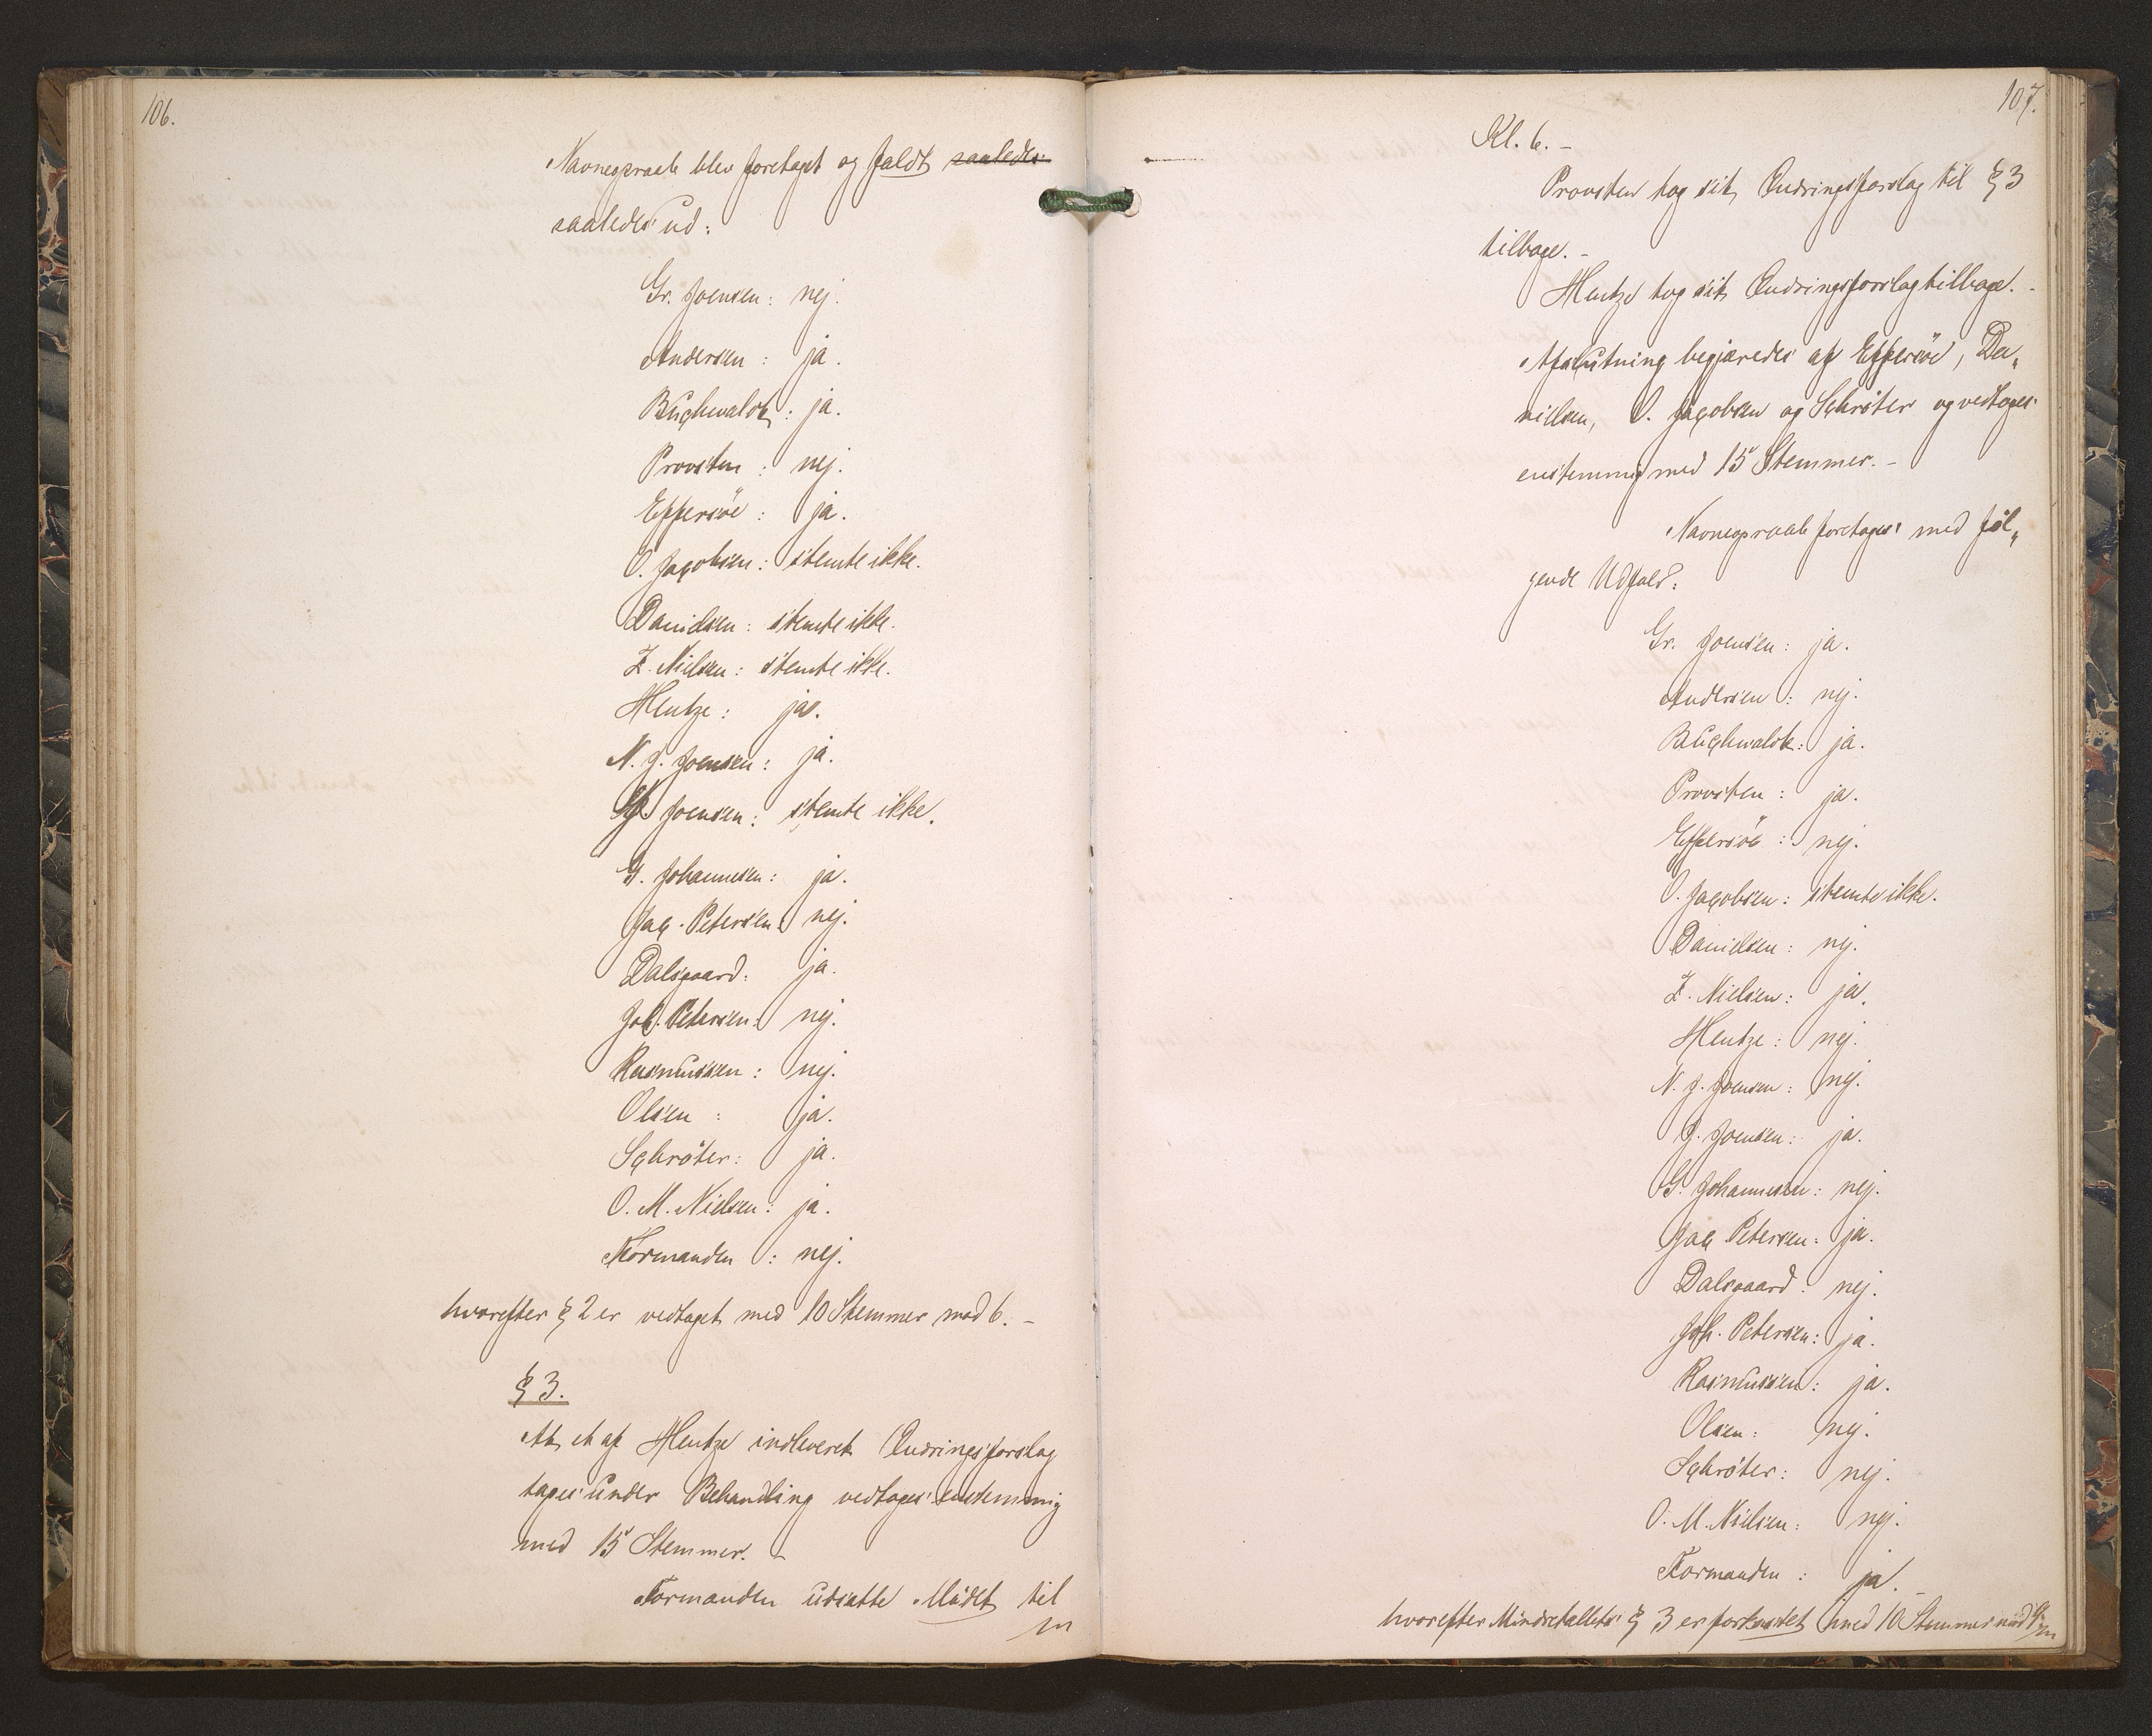 106.
Navneopraab blev foretaget og faldt saaledes
saaledes ud:
Gr. Joensen: nej.
Andersen: ja.
Buchwaldt: ja.
Provsten: nej.
Effersöe: ja.
O. Jacobsen: stemte ikke.
Danielsen: stemte ikke.
Z. Nielsen: stemte ikke.
Hentze: ja.
N. J. Joensen: ja.
J. Joensen: stemte ikke.
G. Johannesen: ja.
Jac. Petersen: nej.
Dalsgaard: ja.
Joh. Petersen: nej.
Rasmussen: nej.
Olsen: ja.
Schröter: ja.
O. M. Nielsen: ja.
Formanden: nej.
hvorefter § 2 er vedtaget med 10 Stemmer mod 6. -
§ 3.
At et af Hentze indleveret Ændringsforslag
tages under Behandling vedtages enstemmig
med 15 Stemmer. -
Formanden udsatte Mödet til
107.
Kl. 6. -
Provsten tog sit Ændringsforslag til § 3
tilbage. -
Hentze tog sit Ændringsforslag tilbage. -
Afslutning begjæredes af Effersöe, Da„
nielsen, O. Jacobsen og Schröter og vedtoges
enstemmig med 15 Stemmer. -
Navneopraab foretages med föl„
gende Udfald:
Gr. Joensen: ja.
Andersen: nej.
Buchwaldt: ja.
Provsten: ja.
Effersöe: nej.
O. Jacobsen: stemte ikke.
Danielsen: nej.
Z. Nielsen: ja.
Hentze: nej.
N. J. Joensen: nej.
J. Joensen: ja.
G. Johannesen: nej.
Jac. Petersen: ja.
Dalsgaard: nej.
Joh. Petersen: ja.
Rasmussen: ja.
Olsen: nej.
Schröter: nej.
O. M. Nielsen: nej.
Formanden: ja. -
hvorefter Mindretallets § 3 er forkastet med 10 Stemmer mod 9.